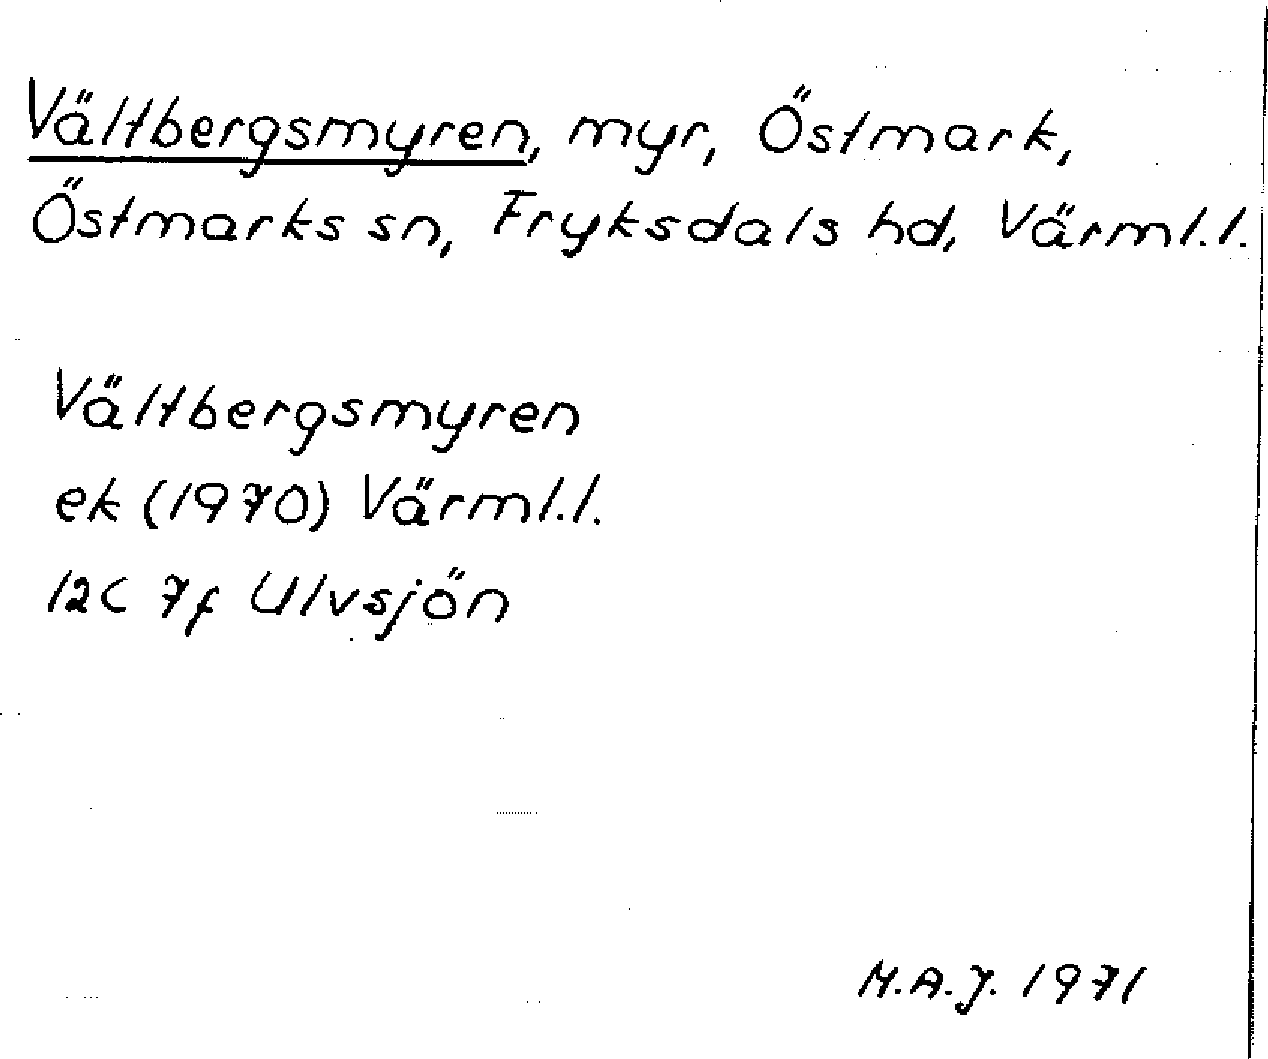 Vältbergsmyren, myr, Östmark,
Östmarks sn, Fryksdals hd, Värml.l.
Vältbergsmyren
ek (1970) Värml.l.
12C 7f Ulvsjön
M.A.J. 1971